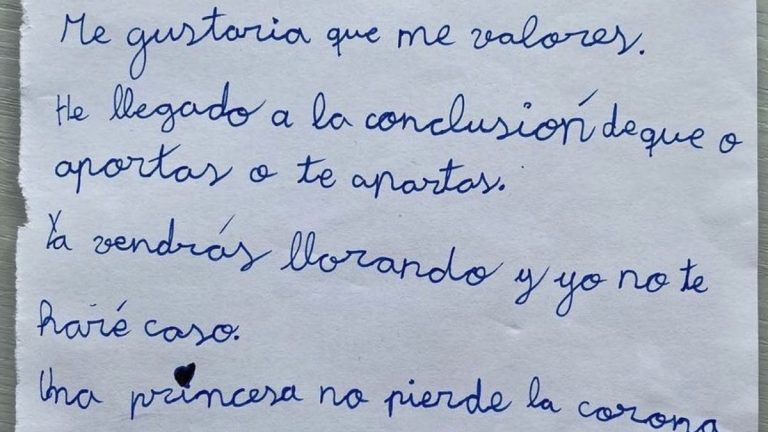 Me gustaria que me valores.
He llegado a la conclusión deque o
aportas o te apartas.
Ya vendrás llorando y yo no te
haré caso.
Una princesa no pierde la corona